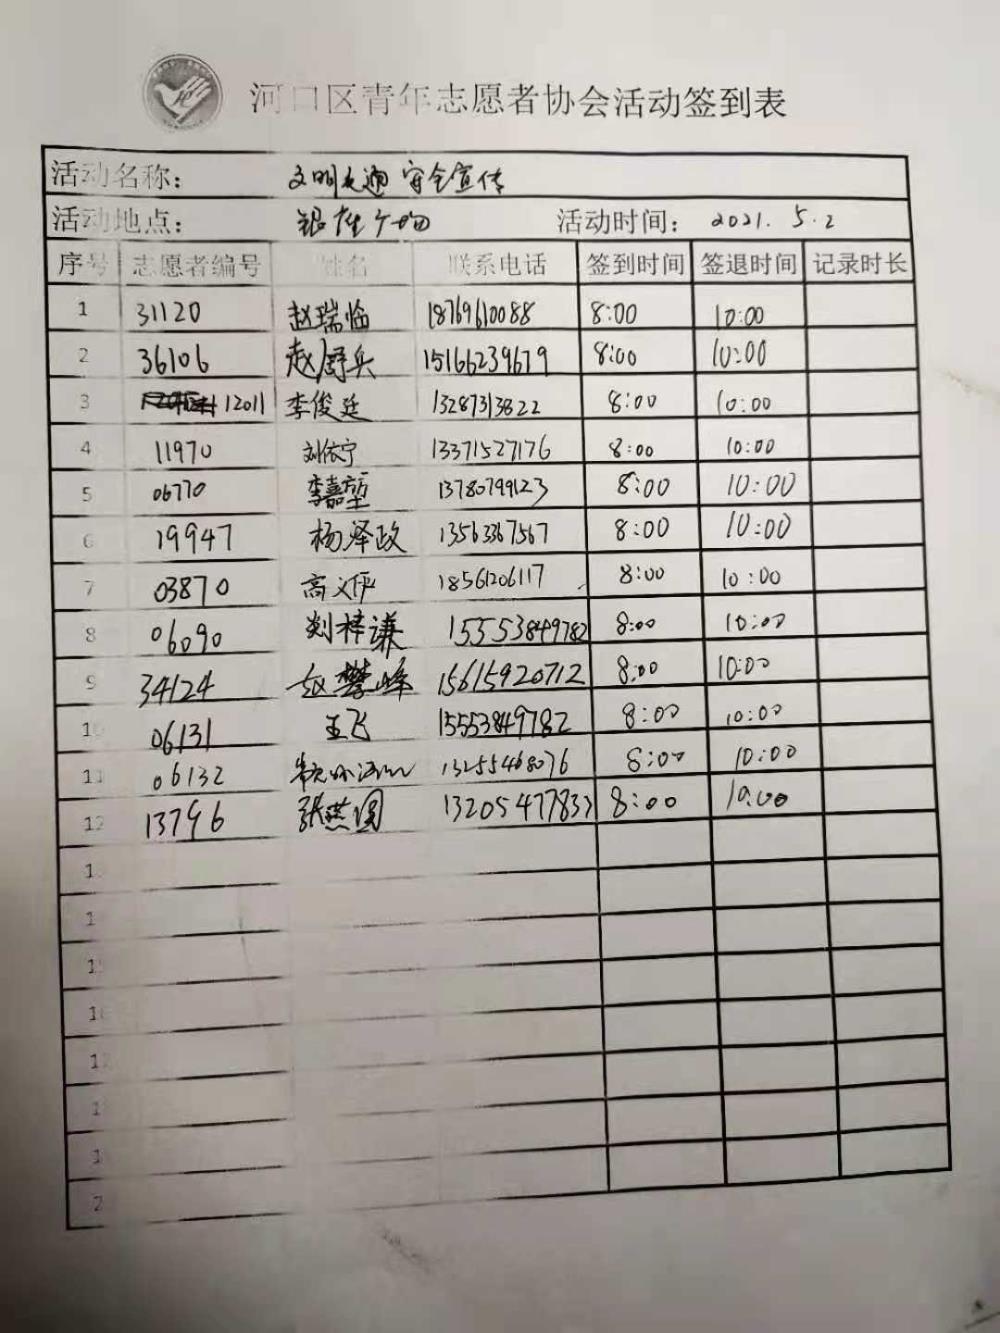 河口区青年志愿者协会活动签到表
活动名称： 文明交通 安全宣传
活动地点： 银座广场 活动时间： 2021. 5. 2
序号 志愿者编号 姓名 联系电话 签到时间 签退时间 记录时长
1 31120 赵瑞临 18769610088 8:00 10:00
2 36106 赵厨兵 15166239679 8:00 10:00
3 12011 李俊廷 13287313822 8:00 10:00
4 11970 刘依宁 13371527176 8:00 10:00
5 06770 李嘉堃 13780799123 8:00 10:00
6 19947 杨泽政 13563367567 8:00 10:00
7 03870 高文萍 18561206117 8:00 10:00
8 06090 刘梓谦 15553849782 8:00 10:00
9 34124 赵攀峰 15615920712 8:00 10:00
10 06131 王飞 15553849782 8:00 10:00
11 06132 13255468076 8:00 10:00
12 13796 张燕圆 13205477833 8:00 10:00